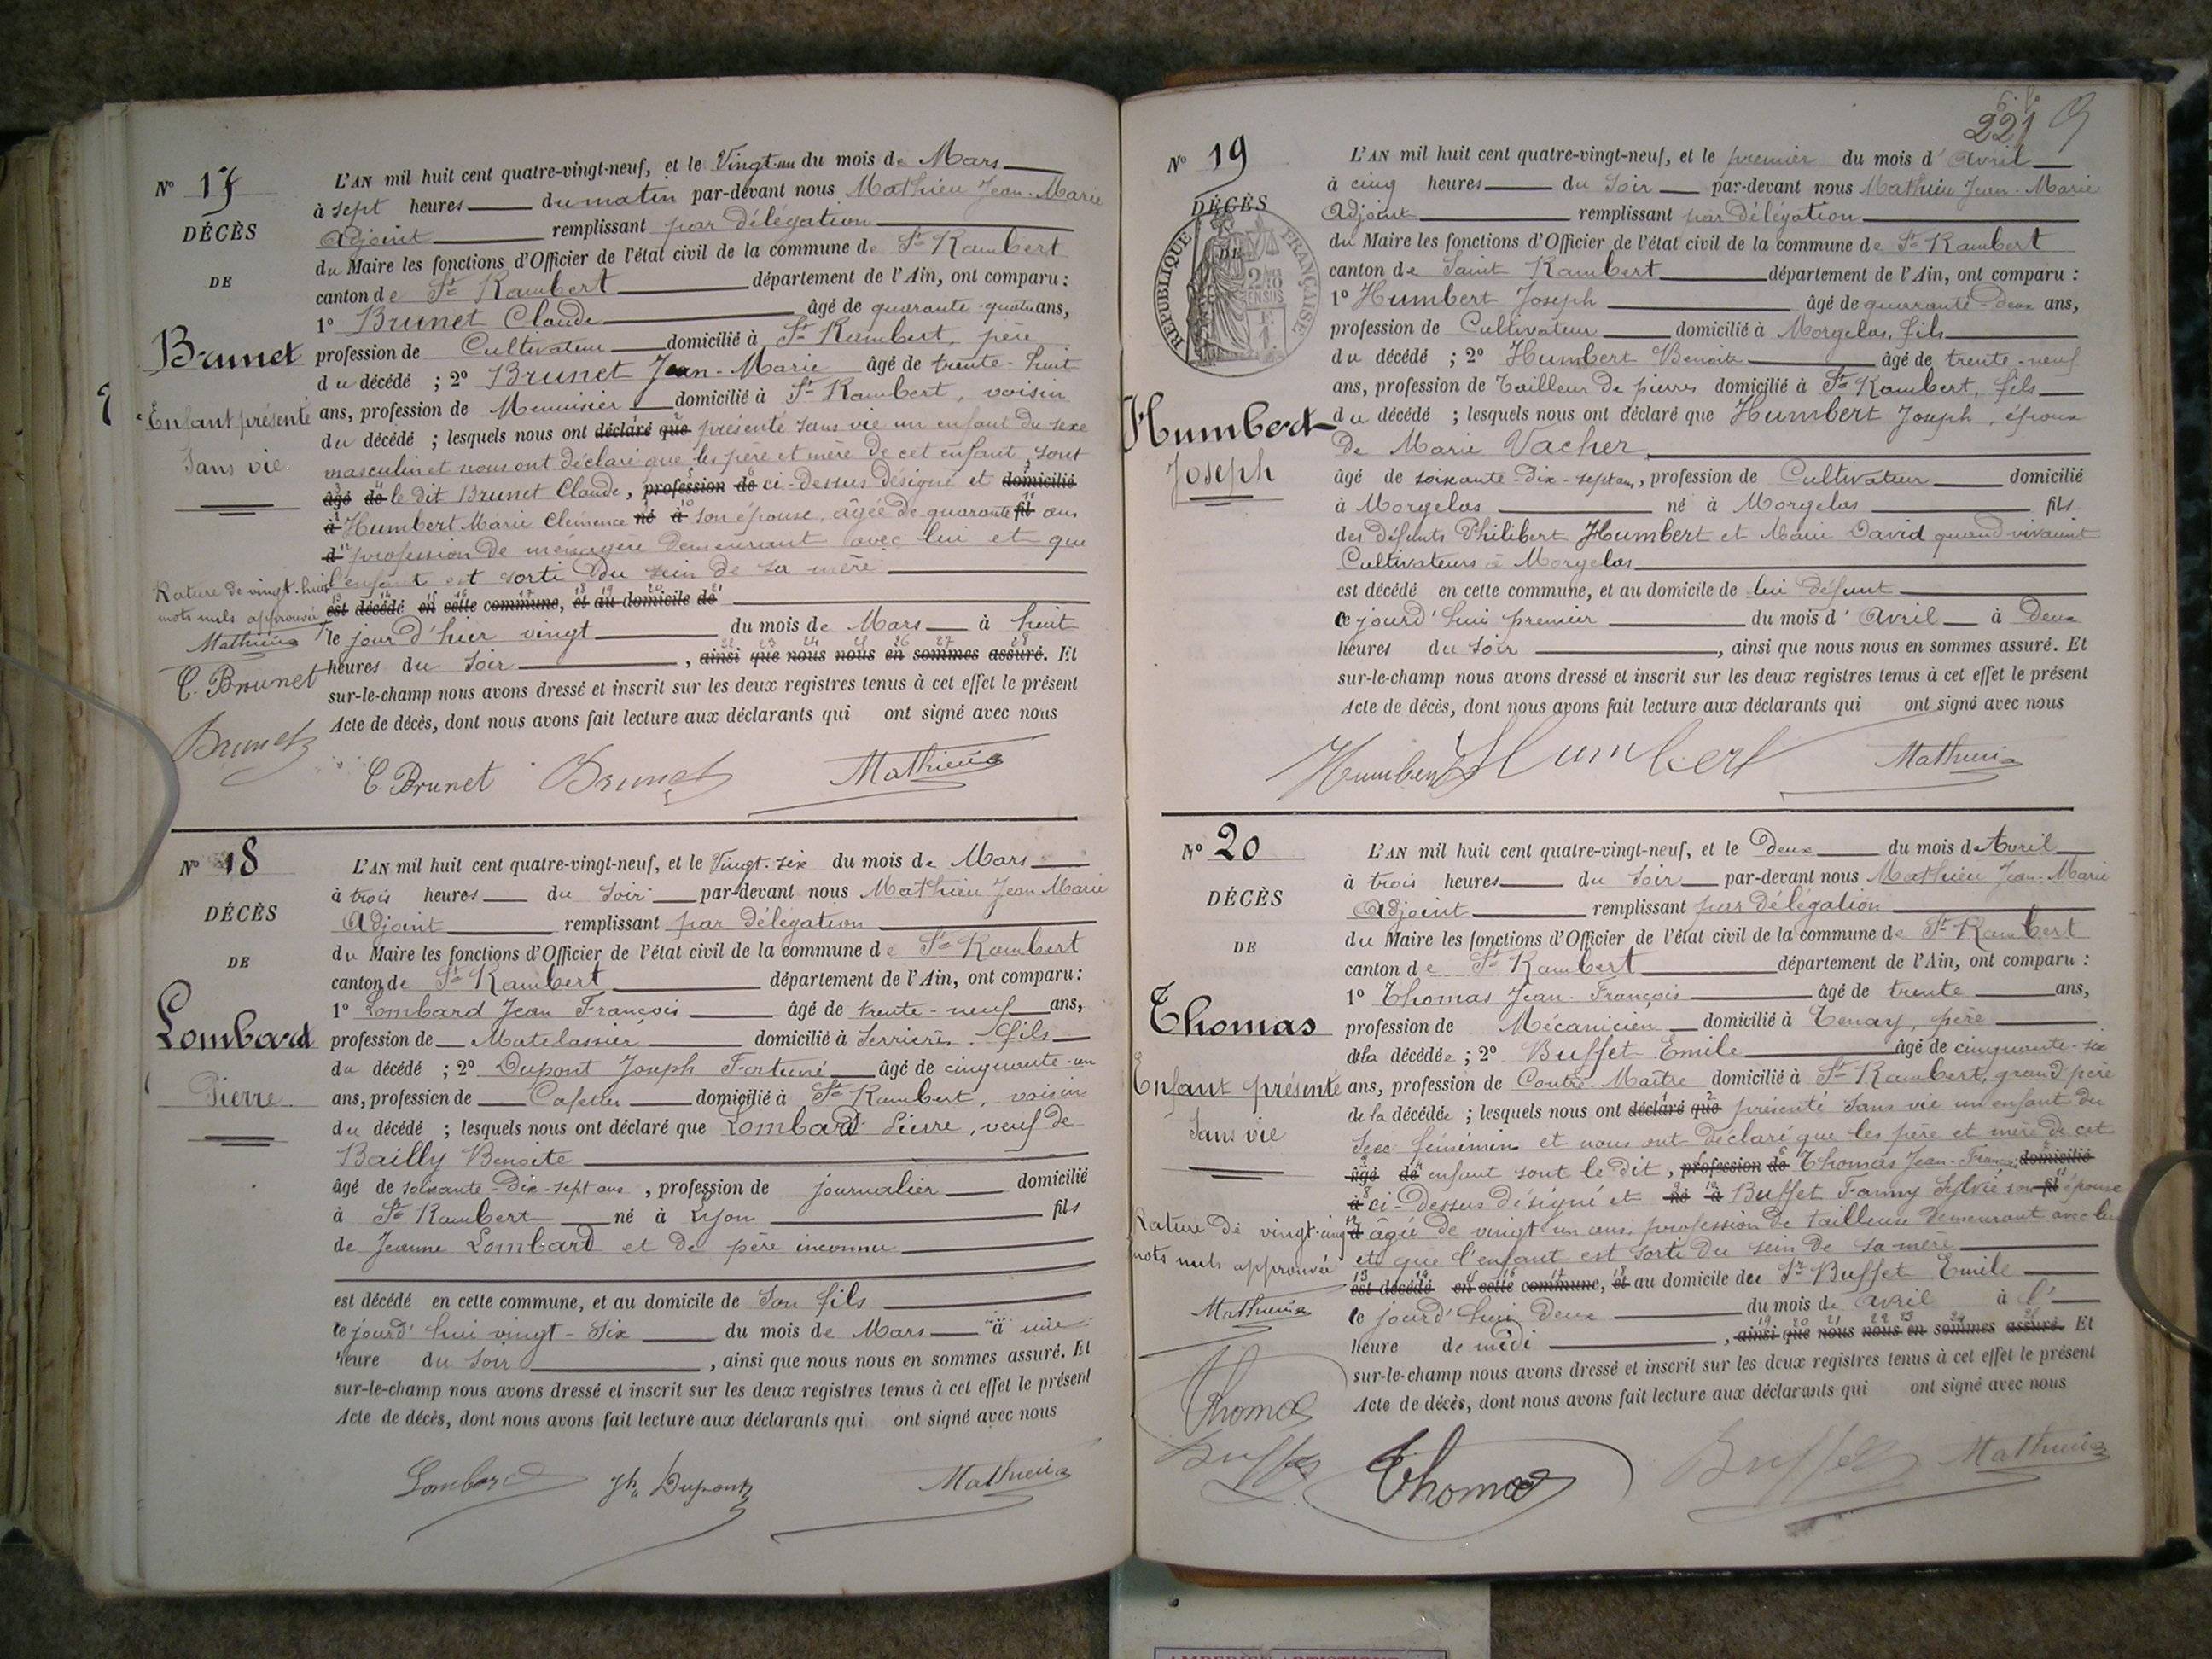 N° 17
DÉCÈS
DE
Brunet
Enfant présenté
Sans vie
L'AN mil huit cent quatre-vingt-neuf, et le Vingt-un du mois de Mars
à sept heures du matin par-devant nous Mathieu Jean-Marie
Adjoint remplissant par délégation
du Maire les fonctions d'Officier de l'état civil de la commune de St Rambert
canton de St Rambert département de l'Ain, ont comparu :
1° Brunet Claude âgé de quarante-quatre ans,
profession de Cultivateur domicilié à St Rambert, père
du décédé ; 2° Brunet Jean-Marie âgé de trente-huit
ans, profession de Menuisier domicilié à St Rambert, voisin
du décédé ; lesquels nous ont déclaré que présenté sans vie un enfant du sexe
masculin et nous ont déclaré que les père et mère de cet enfant, sont
âgé de le dit Brunet Claude, profession de ci-dessus désigné et domicilié
à Humbert Marie Clémence né à son épouse, âgée de quarante fil ans
d profession de ménagère demeurant avec lui et que
l'enfant est sorti du sein de sa mère
est décédé en cette commune, et au domicile de
le jour d'hier vingt du mois de Mars à huit
heures du soir , ainsi que nous nous en sommes assuré. Et
sur-le-champ nous avons dressé et inscrit sur les deux registres tenus à cet effet le présent
Acte de décès, dont nous avons fait lecture aux déclarants qui ont signé avec nous
Rature de vingt-huit
mots nuls approuvée
Mathieu
C. Brunet
Brunet
C. Brunet Brunet Mathieu
N° 18
DÉCÈS
DE
Lombard
Pierre
L'AN mil huit cent quatre-vingt-neuf, et le Vingt-six du mois de Mars
à trois heures du soir par-devant nous Mathieu Jean Marie
Adjoint remplissant par délégation
du Maire les fonctions d'Officier de l'état civil de la commune de St Rambert
canton de St Rambert département de l'Ain, ont comparu :
1° Lombard Jean François âgé de trente-neuf ans,
profession de Matelassier domicilié à Serrières. fils
du décédé ; 2° Dupont Joseph Fortuné âgé de cinquante-un
ans, profession de Cafetier domicilié à St Rambert, voisin
du décédé ; lesquels nous ont déclaré que Lombard Pierre, veuf de
Bailly Benoite
âgé de soixante-dix-sept ans, profession de journalier domicilié
à St Rambert né à Lyon fils
de Jeanne Lombard et de père inconnu
est décédé en cette commune, et au domicile de son fils
le jourd'hui vingt-six du mois de Mars à une
heure du soir , ainsi que nous nous en sommes assuré. Et
sur-le-champ nous avons dressé et inscrit sur les deux registres tenus à cet effet le présent
Acte de décès, dont nous avons fait lecture aux déclarants qui ont signé avec nous
Lombard Jh Dupont Mathieu
221
N° 19
DÉCÈS
DE
RÉPUBLIQUE FRANÇAISE
Humbert
Joseph
L'AN mil huit cent quatre-vingt-neuf, et le premier du mois d'Avril
à cinq heures du soir par-devant nous Mathieu Jean-Marie
Adjoint remplissant par délégation
du Maire les fonctions d'Officier de l'état civil de la commune de St Rambert
canton de Saint Rambert département de l'Ain, ont comparu :
1° Humbert Joseph âgé de quarante-deux ans,
profession de Cultivateur domicilié à Morgelas, fils
du décédé ; 2° Humbert Benoit âgé de trente-neuf
ans, profession de Tailleur de pierres domicilié à St Rambert, fils
du décédé ; lesquels nous ont déclaré que Humbert Joseph, époux
de Marie Vacher,
âgé de soixante-dix-sept ans, profession de Cultivateur domicilié
à Morgelas né à Morgelas fils
des défunts Philibert Humbert et Marie David quand vivaient
Cultivateurs à Morgelas
est décédé en cette commune, et au domicile de lui défunt
ce jourd'hui premier du mois d'Avril à Deux
heures du soir , ainsi que nous nous en sommes assuré. Et
sur-le-champ nous avons dressé et inscrit sur les deux registres tenus à cet effet le présent
Acte de décès, dont nous avons fait lecture aux déclarants qui ont signé avec nous
Humbert Humbert Mathieu
N° 20
DÉCÈS
DE
Thomas
Enfant présenté
Sans vie
L'AN mil huit cent quatre-vingt-neuf, et le deux du mois d'Avril
à trois heures du soir par-devant nous Mathieu Jean-Marie
Adjoint remplissant par délégation
du Maire les fonctions d'Officier de l'état civil de la commune de St Rambert
canton de St Rambert département de l'Ain, ont comparu :
1° Thomas Jean-François âgé de trente ans,
profession de Mécanicien domicilié à Tenay, père
de la décédée ; 2° Buffet Emile âgé de cinquante-six
ans, profession de Contre-Maître domicilié à St Rambert, grand père
de la décédée ; lesquels nous ont déclaré que présenté sans vie un enfant du
sexe féminin et nous ont déclaré que les père et mère de cet
âgé de enfant sont le dit, profession de Thomas Jean-François domicilié
à ci-dessus désigné et né à Buffet Fanny Sylvie son fil épouse
d âgée de vingt un ans, profession de tailleuse demeurant avec lui
et que l'enfant est sorti du sein de sa mère
est décédé en cette commune, et au domicile de Sr Buffet Emile
le jourd'hui deux du mois de Avril à l'
heure de midi , ainsi que nous nous en sommes assuré. Et
sur-le-champ nous avons dressé et inscrit sur les deux registres tenus à cet effet le présent
Acte de décès, dont nous avons fait lecture aux déclarants qui ont signé avec nous
Rature de vingt-cinq
mots nuls approuvée
Mathieu
Thomas
Buffet
Thomas Buffet Mathieu